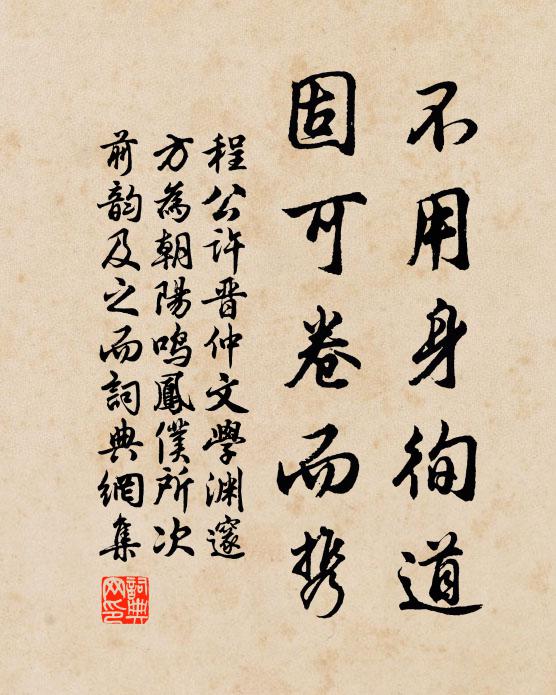 不用身徇道
固可卷而携
程公许晋仲文學渊邃
方為朝陽鳴鳳僕所次
前韵及之而詞典網集
詞典網印